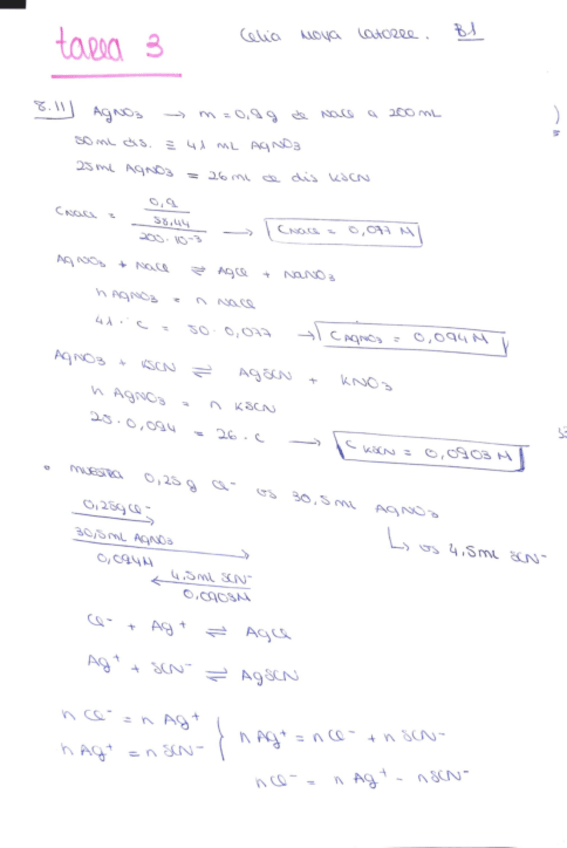 tarea 3
Celia Moya Latorre. B1
8.11) AgNO3 → m = 0,9 g de NaCl a 200 mL
50 mL dis. ≡ 41 mL AgNO3
25 mL AgNO3 = 26 mL de dis KSCN
CNaCl = 0,9 / 58,44 / 200·10-3 → CNaCl = 0,077 M
AgNO3 + NaCl ⇌ AgCl + NaNO3
n AgNO3 = n NaCl
41 · C = 50 · 0,077 → CAgNO3 = 0,094 M
AgNO3 + KSCN ⇌ AgSCN + KNO3
n AgNO3 = n KSCN
25 · 0,094 = 26 · C → CKSCN = 0,0903 M
• MUESTRA 0,25 g Cl- vs 30,5 mL AgNO3
↳ vs 4,5 mL SCN-
0,25g Cl-
30,5 mL AgNO3
0,094M
4,5 mL SCN-
0,0903M
Cl- + Ag+ ⇌ AgCl
Ag+ + SCN- ⇌ AgSCN
n Cl- = n Ag+
n Ag+ = n SCN- } n Ag+ = n Cl- + n SCN-
n Cl- = n Ag+ - n SCN-